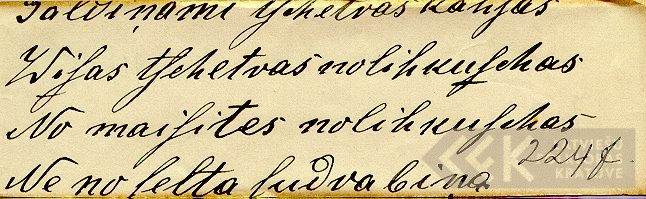 Galdiņami tſchetras kahjas
Wiſas tſchetras nolihkuſchas
No maiſites nolihkuſchas
Ne no ſelta ſudrabiņa 2247.
KRĀTUVE